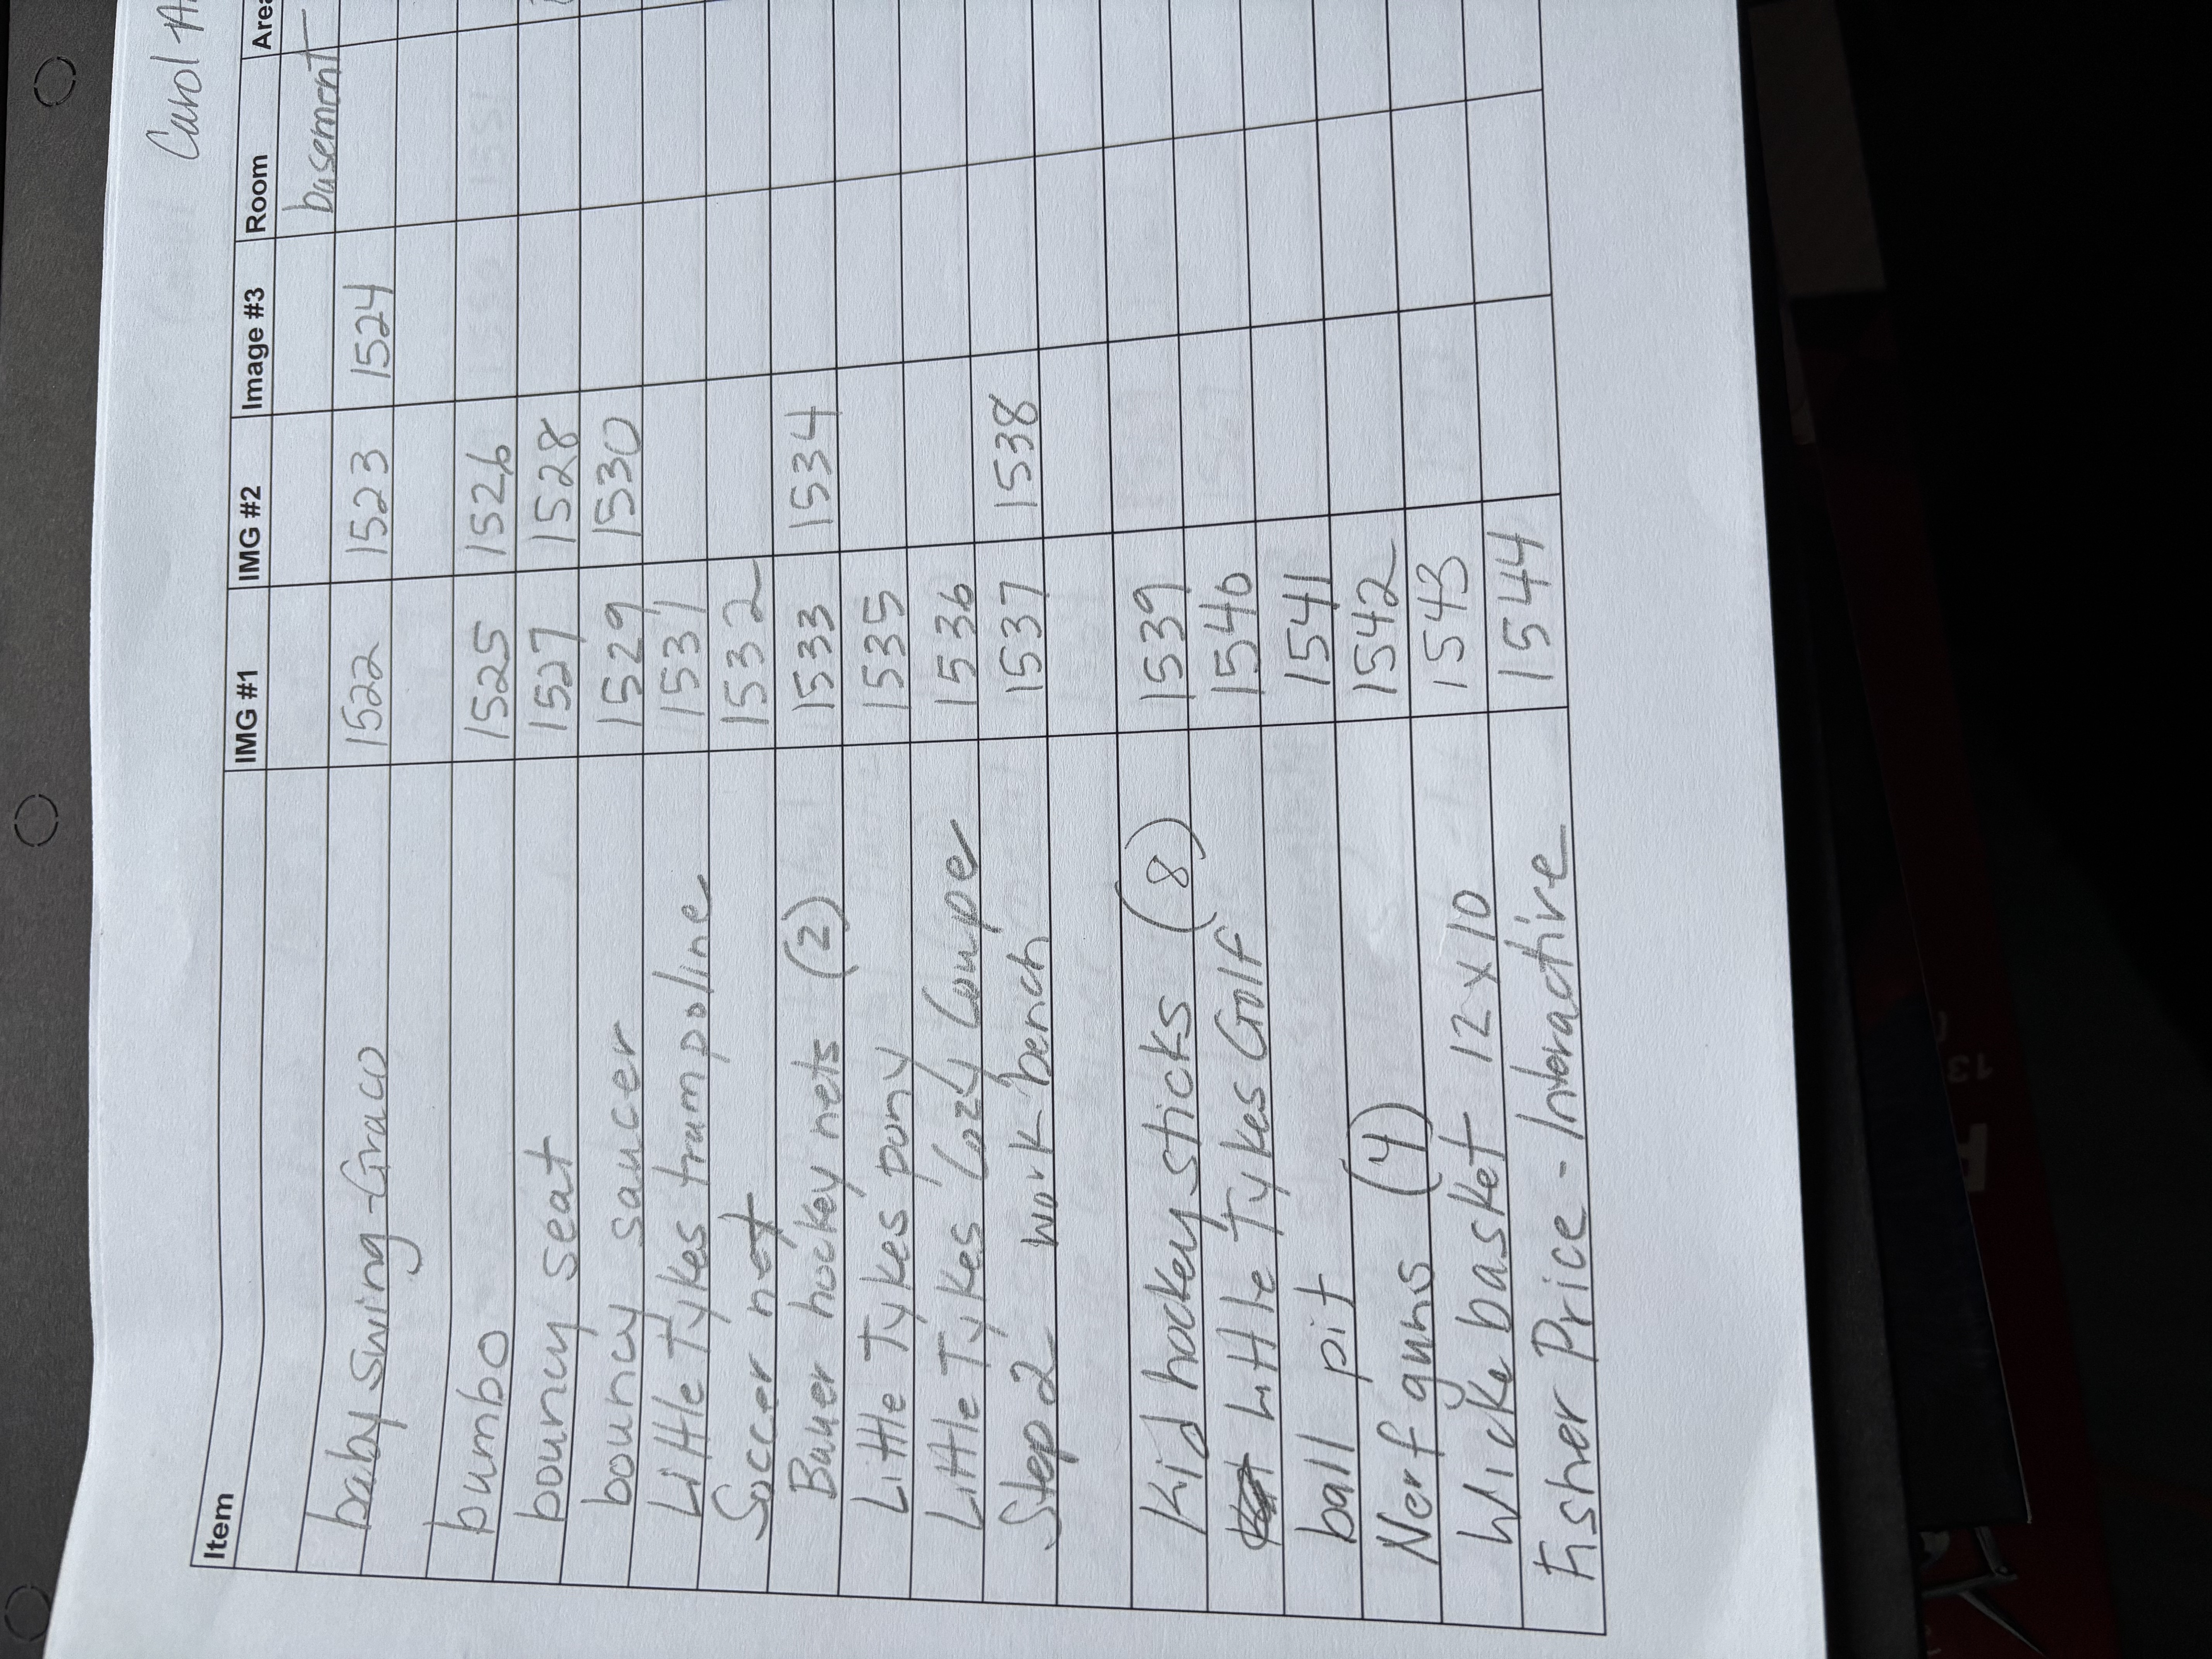 Carol
Item IMG #1 IMG #2 Image #3 Room Area
basement
baby swing - Graco 1522 1523 1524
bumbo 1525 1526
bouncy seat 1527 1528
bouncy saucer 1529 1530
Little Tykes trampoline 1531
Soccer net 1532
Bauer hockey nets (2) 1533 1534
Little Tykes pony 1535
Little Tykes Cozy Couper 1536
Step 2 work bench 1537 1538
Kid hockey sticks (8) 1539
Little Tykes Golf 1540
ball pit 1541
Nerf guns (4) 1542
Wicke basket 12 x 10 1543
Fisher Price - Interactive 1544